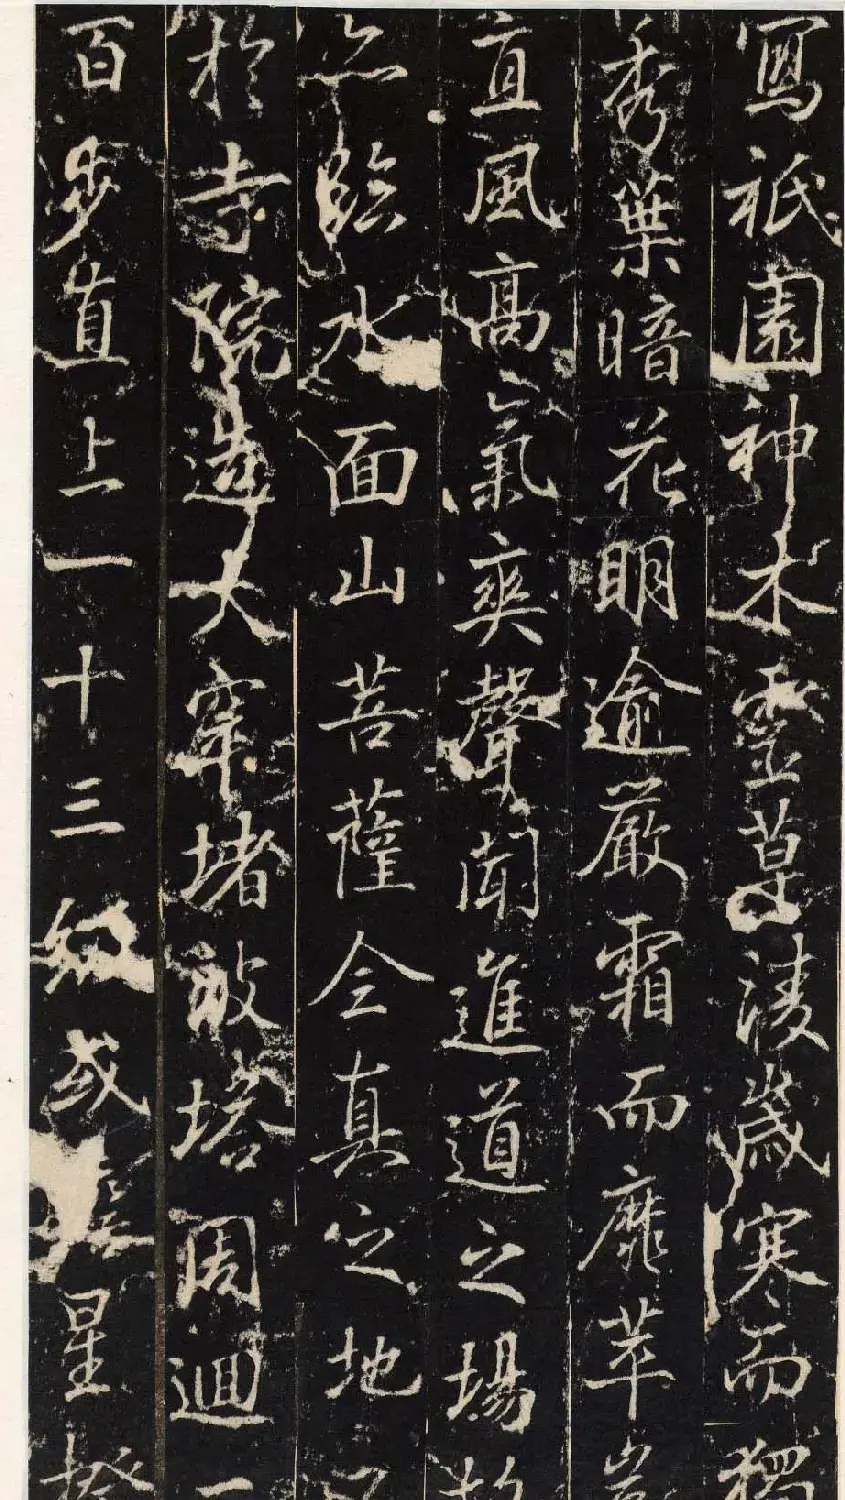 寫祇園神木靈草淩歲寒而獨
秀葉暗花明逾嚴霜而靡萃豈
直風高氣爽聲聞進道之場故
亦臨水面山菩薩全真之地
於寺院造大窣堵波塔周迴二
百步直上一十三級或星